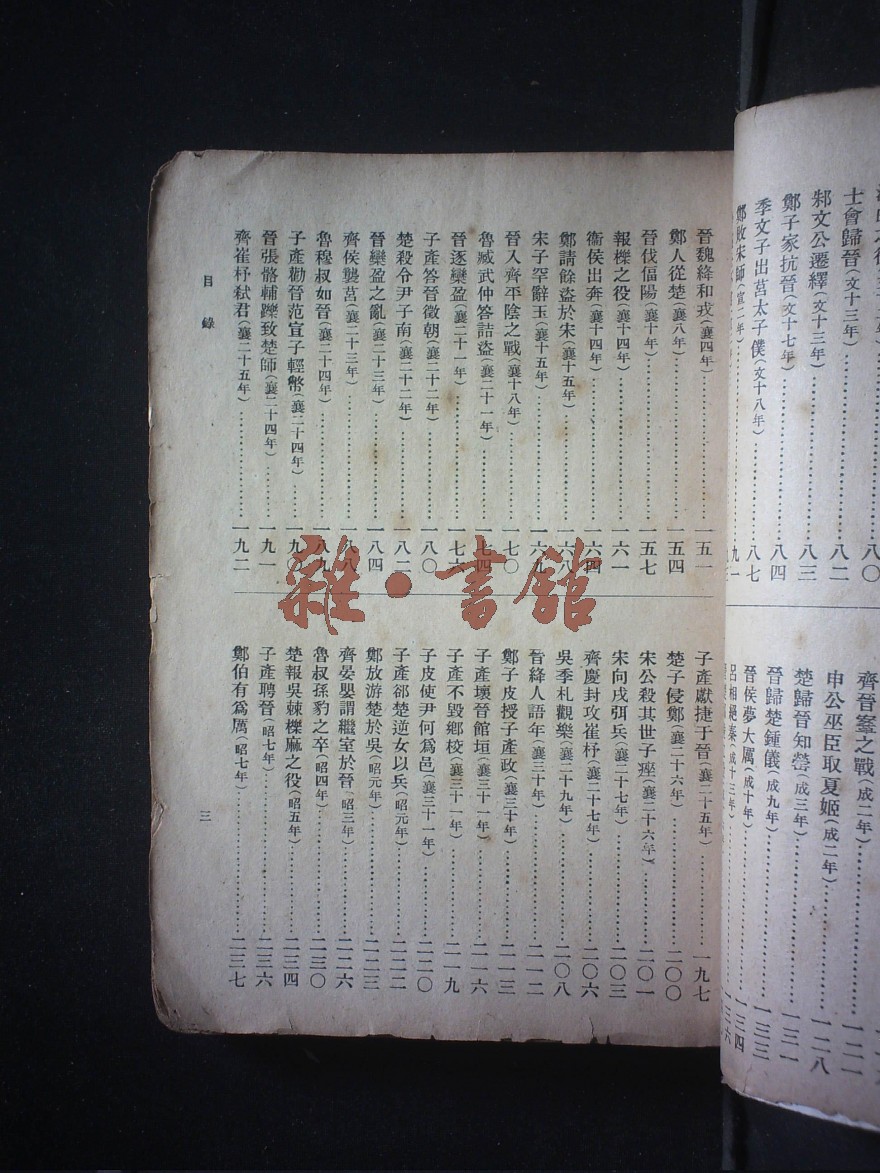 士會歸晉(文十三年)……八〇
邾文公遷繹(文十三年)……八二
鄭子家抗晉(文十七年)……八三
季文子出莒太子僕(文十八年)……八四
鄭敗宋師(宣二年)……八七
九一
齊晉鞌之戰(成二年)……一二一
申公巫臣取夏姬(成二年)……一二八
楚歸晉知罃(成三年)……一三一
晉歸楚鍾儀(成九年)……一三三
晉侯夢大厲(成十年)……一三四
呂相絕秦(成十三年)……一三六
晉魏絳和戎(襄四年)……一五一
鄭人從楚(襄八年)……一五四
晉伐偪陽(襄十年)……一五七
報櫟之役(襄十四年)……一六一
衞侯出奔(襄十四年)……一六四
鄭請餘盜於宋(襄十五年)……一六八
宋子罕辭玉(襄十五年)……一六九
晉入齊平陰之戰(襄十八年)……一七〇
魯臧武仲答詰盜(襄二十一年)……一七四
晉逐欒盈(襄二十一年)……一七六
子產答晉徵朝(襄二十二年)……一八〇
楚殺令尹子南(襄二十二年)……一八二
晉欒盈之亂(襄二十三年)……一八四
齊侯襲莒(襄二十三年)……一八八
魯穆叔如晉(襄二十四年)……一八九
子產勸晉范宣子輕幣(襄二十四年)……一九〇
晉張骼輔躒致楚師(襄二十四年)……一九一
齊崔杼弒君(襄二十五年)……一九二
子產獻捷于晉(襄二十五年)……一九七
楚子侵鄭(襄二十六年)……二〇〇
宋公殺其世子痤(襄二十六年)……二〇一
宋向戌弭兵(襄二十七年)……二〇三
齊慶封攻崔杼(襄二十七年)……二〇六
吳季札觀樂(襄二十九年)……二〇八
晉絳人語年(襄三十年)……二一二
鄭子皮授子產政(襄三十年)……二一三
子產壞晉館垣(襄三十一年)……二一六
子產不毀鄉校(襄三十一年)……二一九
子皮使尹何爲邑(襄三十一年)……二二〇
子產郤楚逆女以兵(昭元年)……二二二
鄭放游楚於吳(昭元年)……二二三
齊晏嬰謂繼室於晉(昭三年)……二二六
魯叔孫豹之卒(昭四年)……二三〇
楚報吳棘櫟麻之役(昭五年)……二三四
子產聘晉(昭七年)……二三六
鄭伯有爲厲(昭七年)……二三七
目錄
三
雜·書館